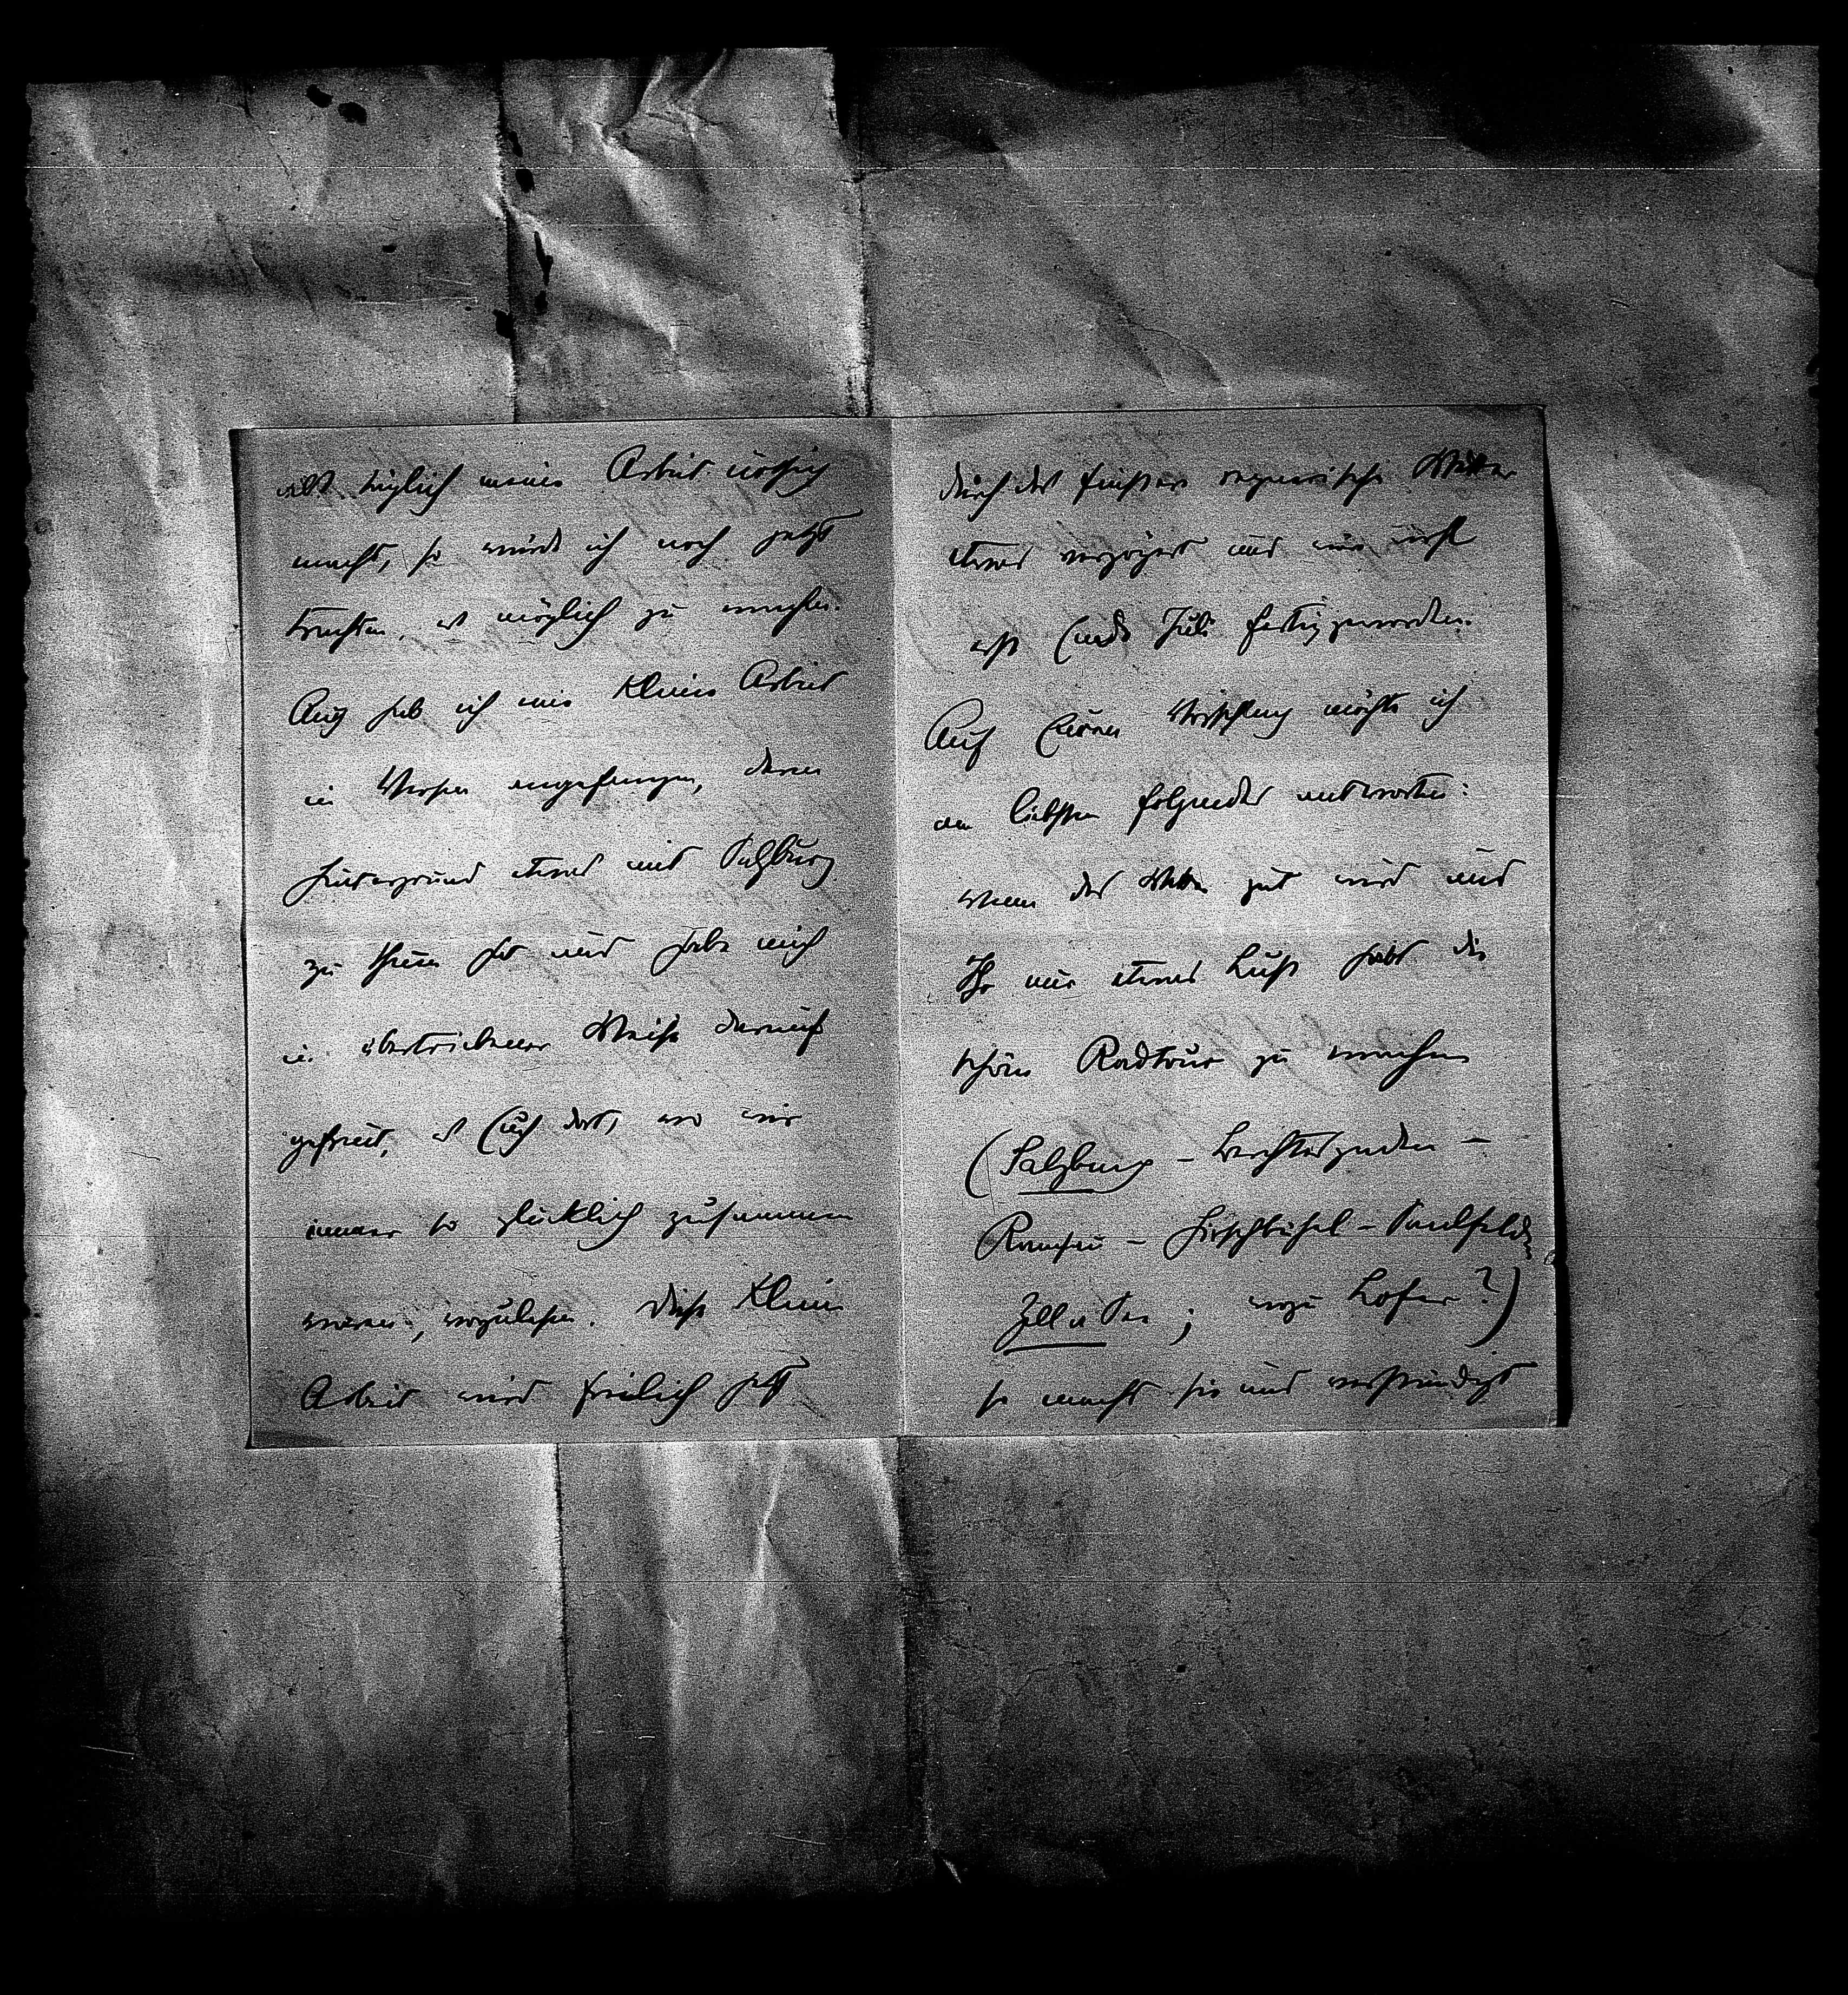 als täglich meine Arbeit nöthig
macht, so würde ich noch jetzt
trachten, es möglich zu machen.
Auch hab ich eine kleine Arbeit
in Versen angefangen, deren
Hintergrund etwas mit Salzburg
zu thuen hat und habe mich
in übertriebener Weise darauf
gefreut, es Euch dort, wo wir
immer so glücklich zusammen
waren, vorzulesen. Diese kleine
Arbeit wird freilich jetzt
durch das finstere regnerische Wetter
etwas verzögert und mir nicht
erst Ende Juli fertig geworden.
Auf Euren Vorschlag möchte ich
am liebsten folgendes antworten:
wenn das Wetter gut wird und
Ihr nur etwas Lust habt die
schöne Radtour zu machen
(Salzburg – Berchtesgaden –
Ramsau – Hirschbichl – Saalfelden
Zell a See; wozu Lofer?)
so macht sie und verständigt